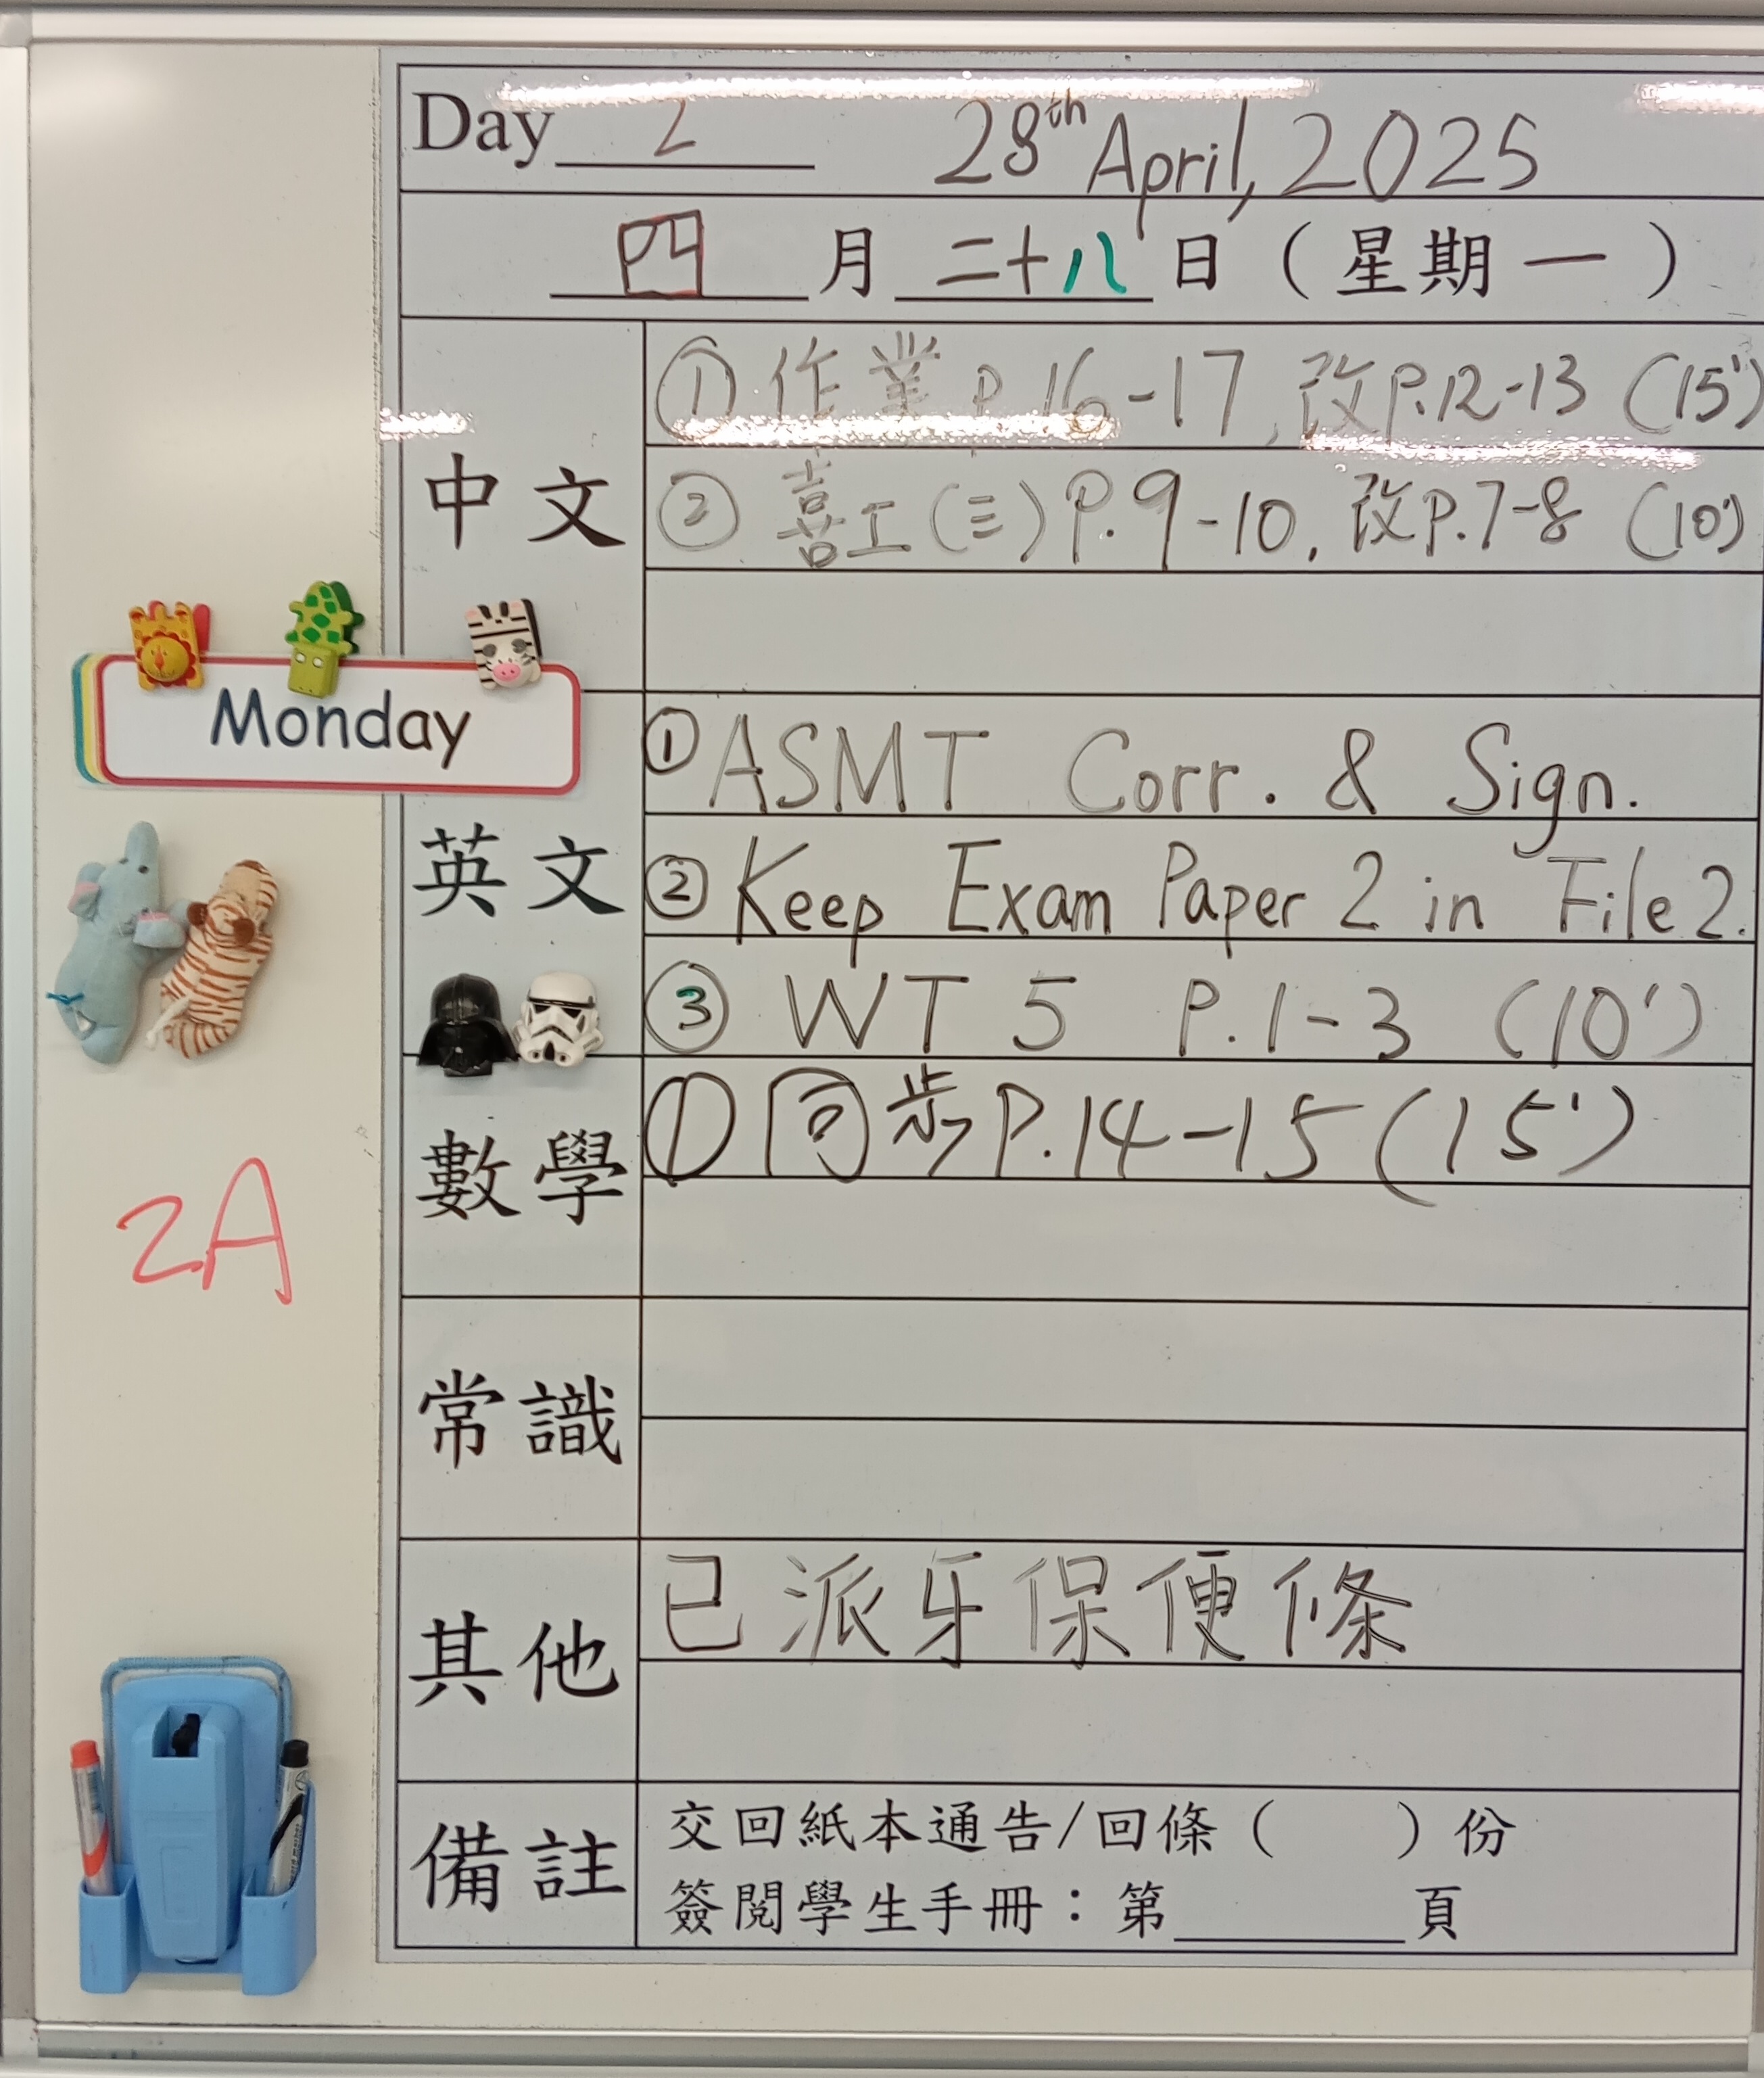 Day 2 28th April, 2025
四月二十八日（星期一）
中文
① 作業 P.16-17, 改P.12-13 (15')
② 喜工(三) P.9-10, 改P.7-8 (10')
Monday
英文
① ASMT Corr. & Sign.
② Keep Exam Paper 2 in File 2.
③ WT 5 P.1-3 (10')
數學
① 同步P.14-15 (15')
2A
常識
其他
已派牙保便條
備註
交回紙本通告/回條（ ）份
簽閱學生手冊：第____頁